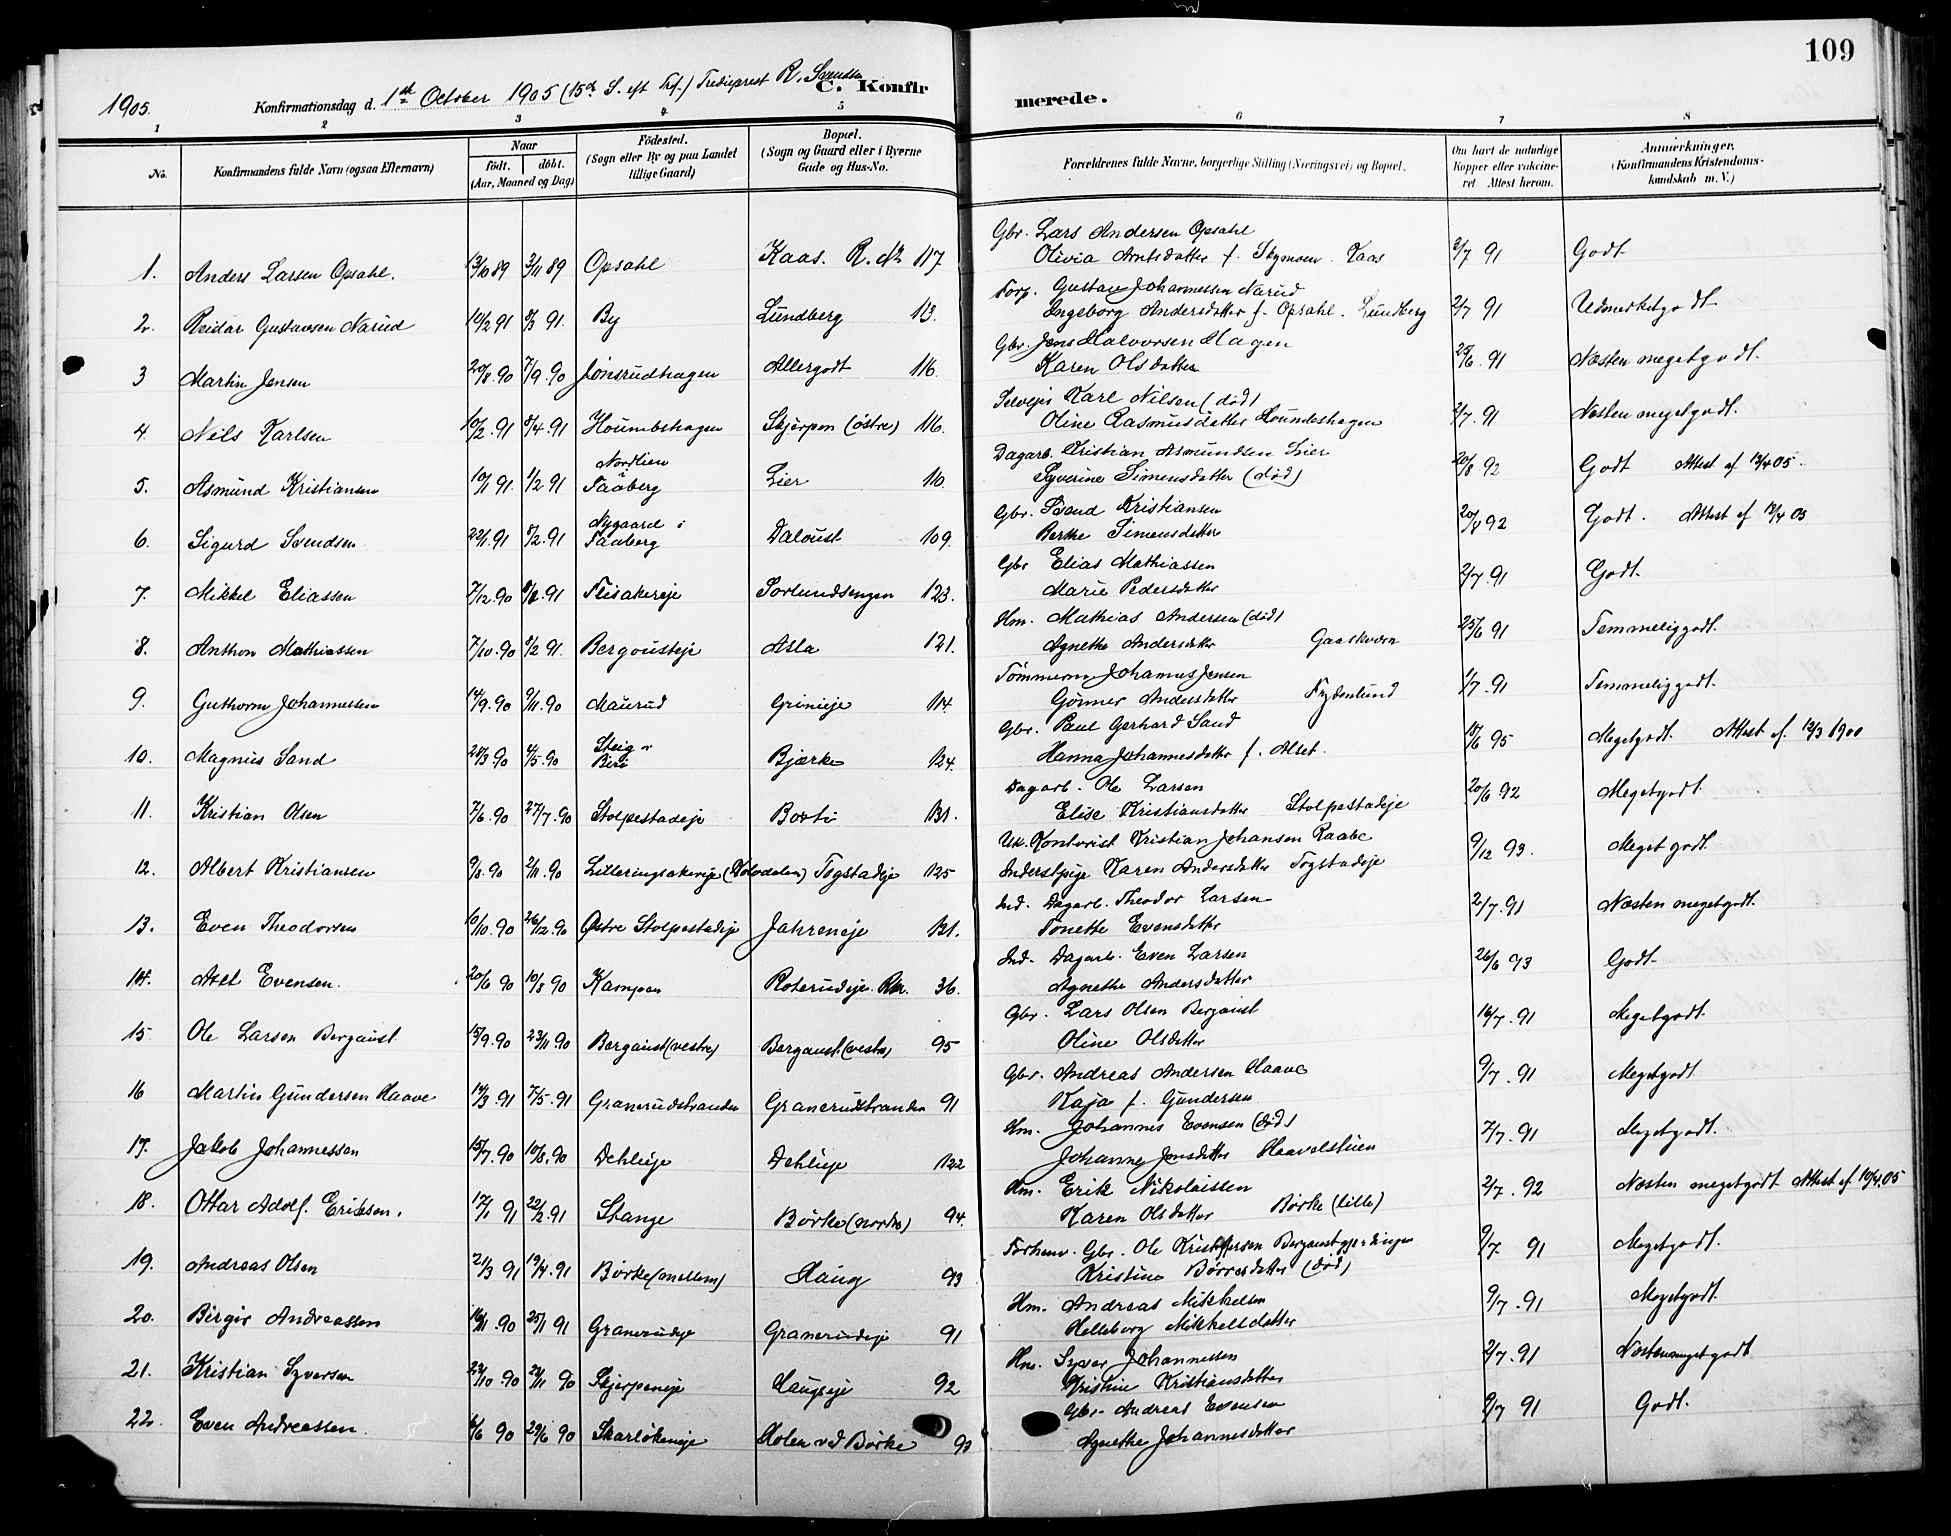 109
1905.
Konfirmationsdag d. 1ste October 1905 (15de S. eft Trf.) Tredieprest R. Svendsen
C. Konfirmerede.
1 2 3 4 5 6 7 8
No. Konfirmandens fulde Navn (ogsaa Efternavn) Naar født. døbt. (Aar, Maaned og Dag) Fødested. (Sogn eller By og paa Landet tillige Gaard) Bopæl. (Sogn og Gaard eller i Byerne Gade og Hus-No. Forældrenes fulde Navne, borgerlige Stilling (Næringsvei) og Bopæl. Om havt de naturlige Kopper eller vakcineret Attest herom. Anmerkninger. (Konfirmandens Kristendomskundskab m. V.)
1. Anders Larsen Opsahl. 13/10 89 3/11 89 Opsahl Kaas. R. No 117 Gbr. Lars Andersen Opsahl
Olivia Arntsdatter f. Skymoen. Kaas 2/7 91 Godt
2. Reidar Gustavsen Narud 10/2 91 8/3 91. By Lundberg 13. Forp. Gustav Johannessen Narud
Ingeborg Andersdatter f. Opsahl. Lundberg 2/7 91 Udmerketgodt
3 Martin Jensen 20/8 90 7/9. 90 Jønsrudhagen Allergodt 116. Gbr. Jens Halvorsen Hagen
Karen Olsdatter 25/6. 91 Næsten megetgodt.
4. Nils Karlsen 10/2. 91 8/4. 91 Houmbshagen Skjerpen (østre) 116. Selvejer Karl Nilsen (død)
Oline Rasmusdatter 2/7. 91 Næsten megetgodt.
5. Asmund Kristiansen 10/1 91. 1/2 91 Nordlien i Faaberg Lier 110. Dagarb. Kristian Asmundsen Lier
Syverine Simensdatter (død) 20/8 92 Godt Attest af 12/4 05.
6. Sigurd Svendsen 22/1. 91 8/2. 91 Nygaard i Faaberg Daloust 109. Gbr. Svend Kristiansen
Berthe Simensdatter 92 Godt. Attest af 12/4 05
7. Mikkel Eliassen 7/12. 90 91 Flisakereje Sørlundsengen 123. Gbr Elias Mathiassen
Marie Pedersdatter 2/7. 91 Godt.
8. Anthon Mathiassen 7/10. 90 8/2. 91. Bergousteje Asla 121. Hm. Mathias Andersen (død)
Agnethe Andersdatter Gaaskværn 25/6 91 Temmeliggodt.
9. Guthorm Johannessen 14/9. 90 9/11. 90 Maurud Grinieje 114. Tømmerm Johannes Jensen
Gunner Andersdatter Frydenlund 1/7. 91 Temmeliggodt.
10. Magnus Sand 28/3. 90 4/5. 90 Steig i Biri Bjærke 124. Gbr. Paul Gerhard Sand
Hanna Johannesdatter f. Alset. 15/6 95 Megetgodt. Attest af 12/3 1900
11. Kristian Olsen 7/6. 90 27/7. 90 Stolpestadeje 131. Dagarb. Ole Larsen
Elise Kristiansdatter Stolpestadeje 20/6 92 Megetgodt.
12. Albert Kristiansen 9/8. 90 2/11. 90 Lilleringsakereje Tøgstadeje 125 Uk. Kontorist Kristian Johansen Raabe
Karen Andersdatter Togstadeje 9/12 93. Meget godt.
13. Even Theodorsen 10/10. 90 26/12. 90 Østre Stolpestadeje Jahreneje 131. Ind. Dagarb. Theodor Larsen
Tonette Evensdatter 2/7. 91 Næsten megetgodt.
14. Axel Evensen. 20/6 90 10/8 90 Kampen Roterudeje. Rn. 36. Ind. Dagarb. Even Larsen
Agnethe Andersdatter 26/6 93 Godt.
15. Ole Larsen Bergaust. 15/9. 90 23/11. 90 Bergaust (vestre) Bergaust (vestre) 95 Gbr. Lars Olsen Bergaust
Oline Olsdatter 16/7. 91 Megetgodt.
16 Martin Gundersen Haave 14/3. 91 7/5. 91 Granerudstranden Granerudstranden 91 Gbr. Andreas Andersen Haave
Kaja f. Gundersen 9/7. 91 Megetgodt.
17. Jakob Johannessen 15/7. 90 10/8. 90 Dehlieje Dehlieje 122 Hm. Johannes Evensen (død)
Johanne Jensdatter Haavelstuen 7/7. 91 Megetgodt.
18. Ottar Adolf. Eriksen. 17/1 91 22/2. 91 Stange Børke (nordre) 94. Hm. Erik Nikolaissen
Karen Olsdatter Børke (lille) 2/7. 92 Næsten megetgodt Attest af 10/4. 05
19. Andreas Olsen 21/3 91 19/4. 91 Børke (mellem) Haug 93 Forhenv. Gbr. Ole Kristoffersen
Kristine Børresdatter (død) 9/7. 91 Megetgodt.
20. Birgir Andreassen 16/11. 90 25/1 91 Granerudeje Granerudeje 91 Hm. Andreas Mikkelsen
Helleborg Mikkelsdatter 9/7. 91 Megetgodt.
21. Kristian Syversen 22/10. 90 90 Skjerpeneje Haugseje 92 Hm. Syver Johannessen
Kristine Kristiansdatter 2/7. 91 Næstenmegetgodt
22. Even Andreassen. 6/6 90 29/6 90 Skarløkeneje Holen vd Børke 90 Gbr. Andreas Evensen
Agnethe Johannesdatter 9/7 91 Godt.